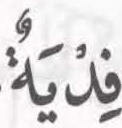 فِدْيَةٌ